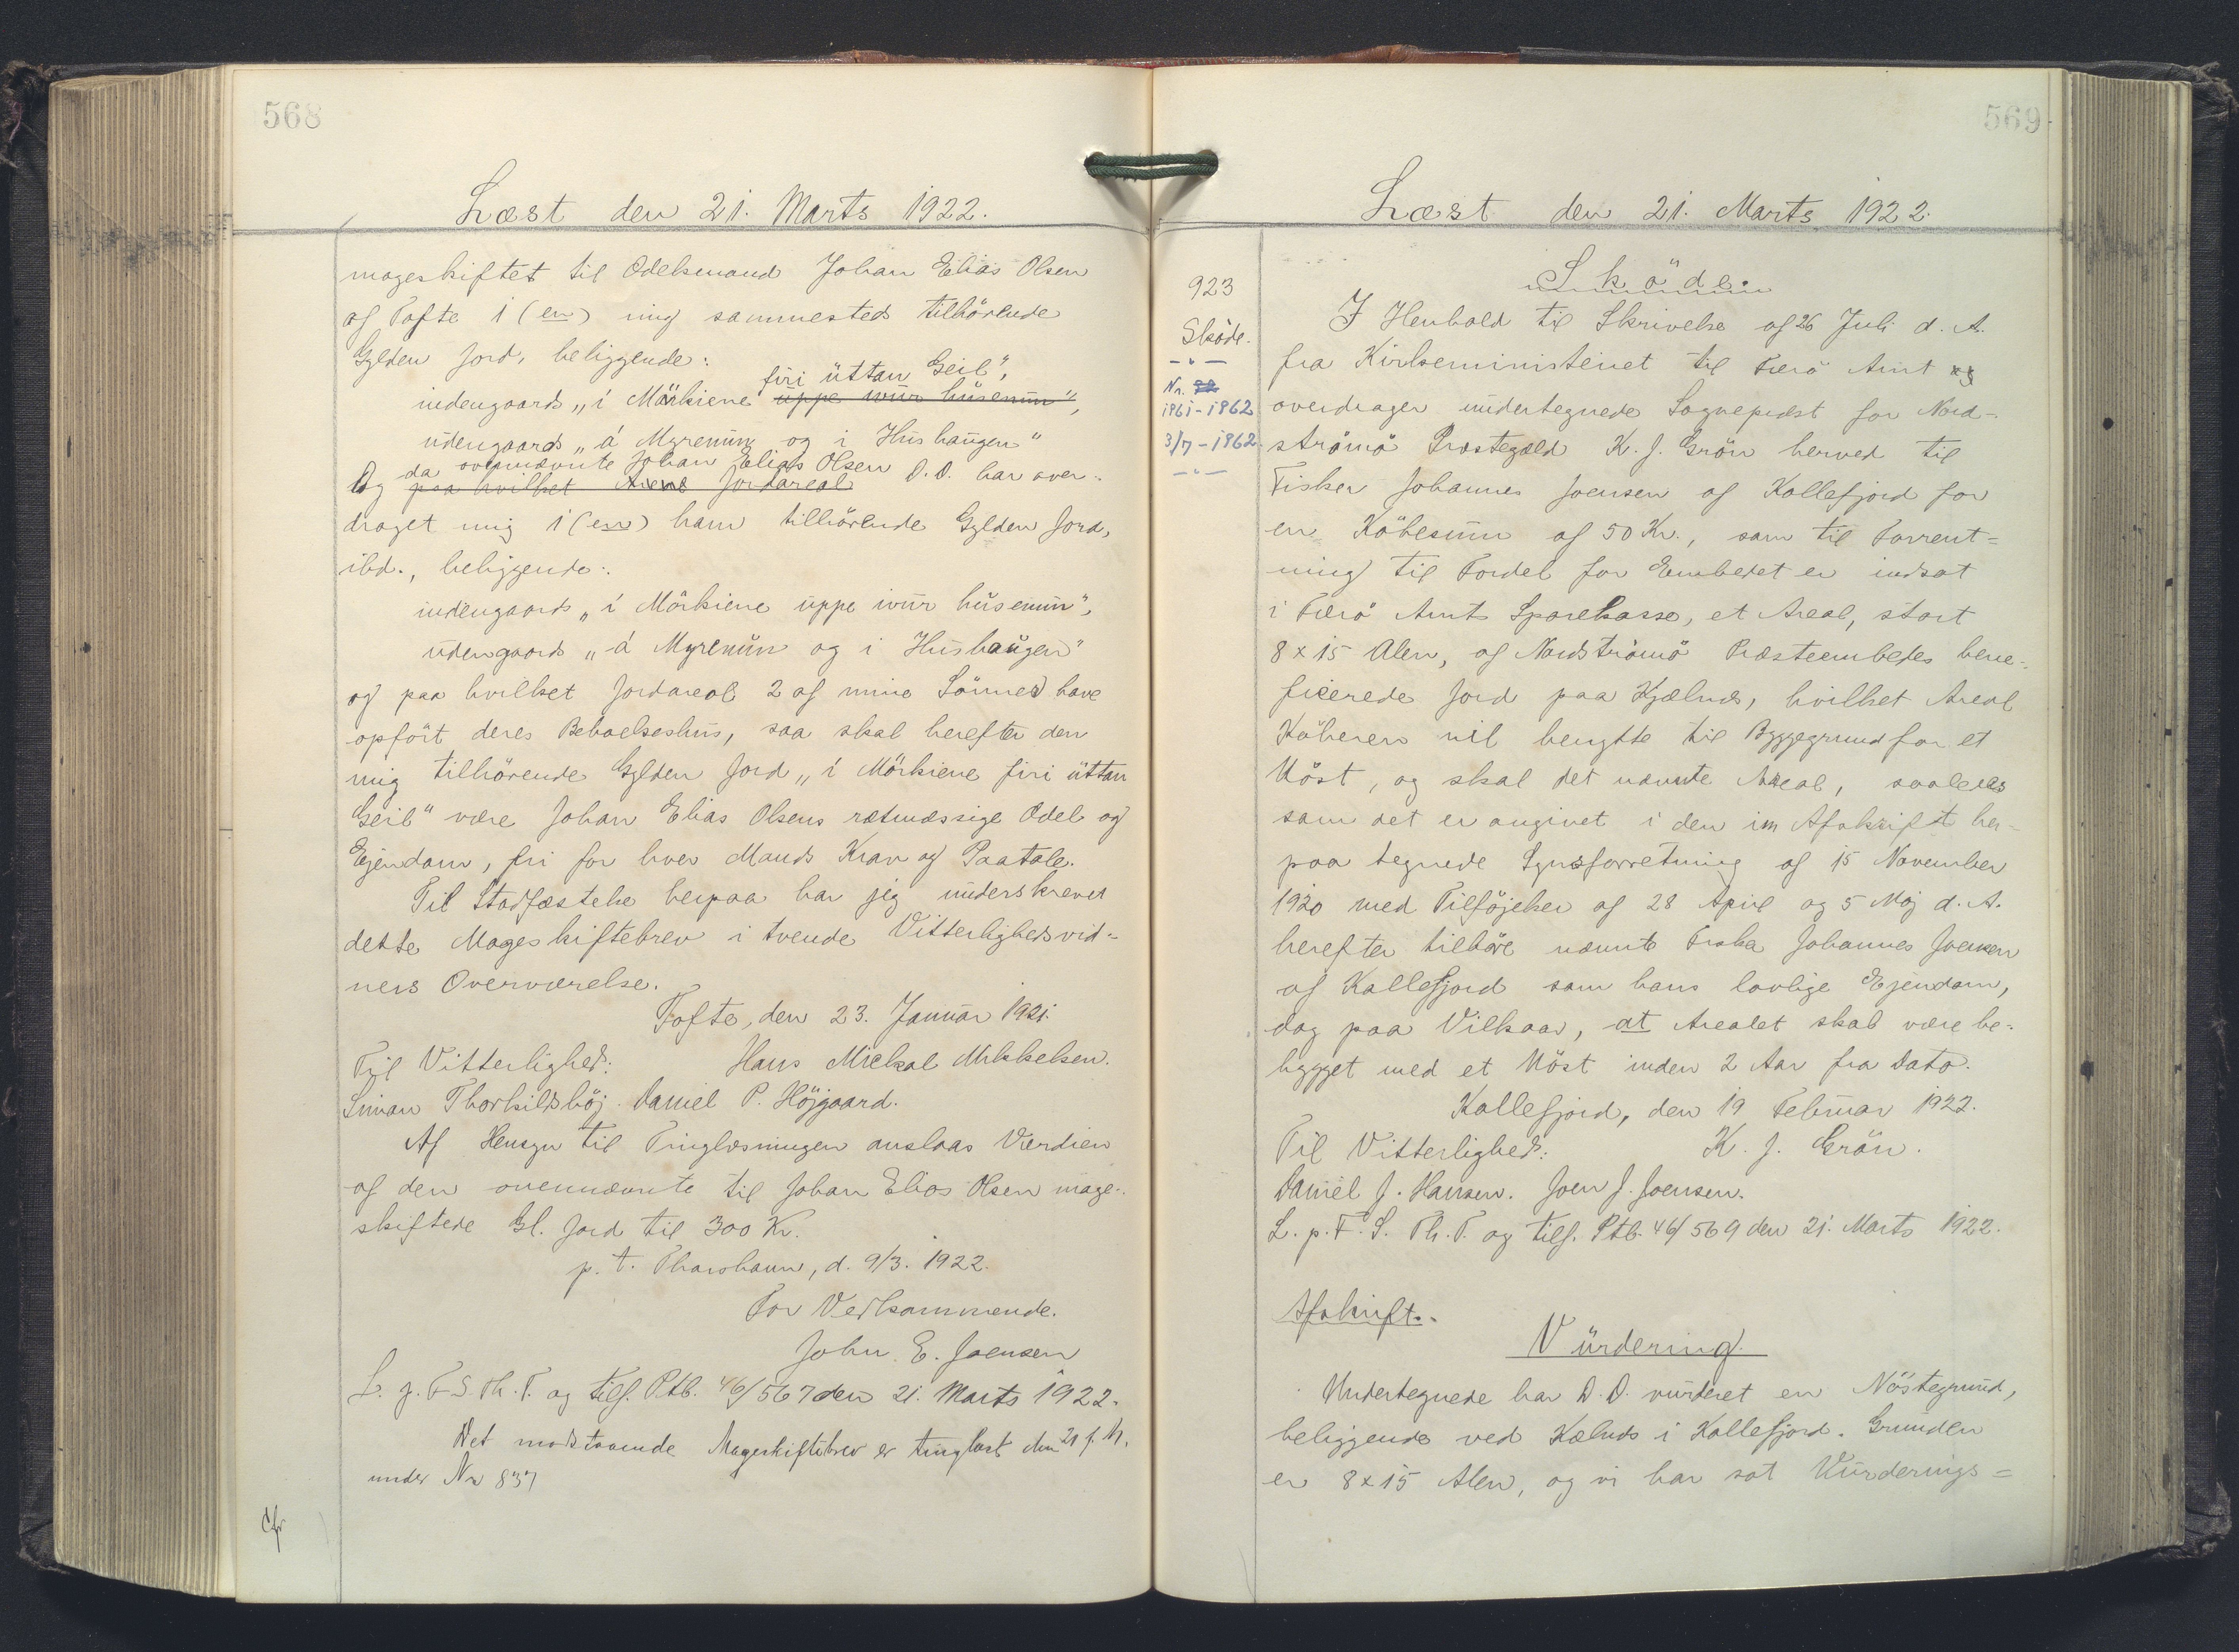 568
Læst den 21. Marts 1922.
mageskiftet til Odelsmand Johan Elias Olsen
af Tofte 1 (en) mig sammesteds tilhörende
Gylden Jord, beliggende:
firi üttan Geil",
indengaards „i Mörkiene uppe ivur húsenun",
udengaards „á Myrenun og i Hushaugen"
da ovennævnte Johan Elias Olsen
Og paa hvilket Areal Jordareal D.D. har over-
draget mig 1 (en) ham tilhörende Gylden Jord,
ibd., beliggende:
indengaards „i Mörkiene uppe ivur húsenun",
udengaards „á Myrenun og i Hushaugen"
og paa hvilket Jordareal 2 af mine Sönner have
opfört deres Beboelseshus, saa skal herefter den
mig tilhörende Gylden Jord „i Mörkiene firi üttan
Geil" være Johan Elias Olsens retmæssige Odel og
Ejendom, fri for hver Mands Krav og Paatale.
Til Stadfæstelse herpaa har jeg underskrevet
dette Mageskiftebrev i tvende Vitterlighedsvid-
ners Overværelse.
Tofte, den 23. Januar 1921.
Til Vitterlighed: Hans Mickal Mikkelsen.
Simon Thorkildshöj. Daniel P. Höjgaard.
Af Hensyn til Tinglæsningen anslaas Værdien
af den ovennævnte til Johan Elias Olsen mage-
skiftede Gl. Jord til 300 Kr.
p. t. Thorshavn, d. 9/3. 1922.
For Vedkommende.
John. E. Joensen
L. p. F. S. Th. T. og tilf. Ptb. 46/567 den 21. Marts 1922.
Det modstaaende Mageskiftebrev er tinglæst den 21 f. M.
under Nr 837
Cfr
569
Læst den 21. Marts 1922.
923
Sköde.
Nr. 22
1861-1862
3/7-1862.
Sköde.
I Henhold til Skrivelse af 26 Juli d. A.
fra Kirkeministeriet til Færö Amt
overdrager undertegnede Sognepræst for Nord-
strömö Præstegæld K. J. Grön herved til
Fisker Johannes Joensen af Kollefjord for
en Köbesum af 50 Kr., som til Forrent-
ning til Fordel for Embedet er indsat
i Færö Amts Sparekasse, et Areal, stort
8 x 15 Alen, af Nordströmö Præsteembedes bene-
ficerede Jord paa Kjælnes, hvilket Areal
Köberen vil benytte til Byggegrund for et
Nöst, og skal det nævnte Areal, saaledes
som det er angivet i den im Afskrift her-
paa tegnede Synsforretning af 15 November
1920 med Tilföjelser af 28 April og 5 Maj d. A.
herefter tilhöre nævnte Fisker Johannes Joensen
af Kollefjord som hans lovlige Ejendom,
dog paa Vilkaar, at Arealet skal være be-
bygget med et Nöst inden 2 Aar fra Dato.
Kollefjord, den 19 Februar 1922.
Til Vitterlighed: K. J. Grön.
Daniel J. Hansen. Joen J. Joensen.
L. p. F. S. Th. T. og tilf. Ptb. 46/569 den 21. Marts 1922.
Afskrift.
Vurdering.
Undertegnede har D.D. vurderet en Nöstegrund,
beliggende ved Kælnes i Kollefjord. Grunden
er 8 x 15 Alen, og vi har sat Vurderings-